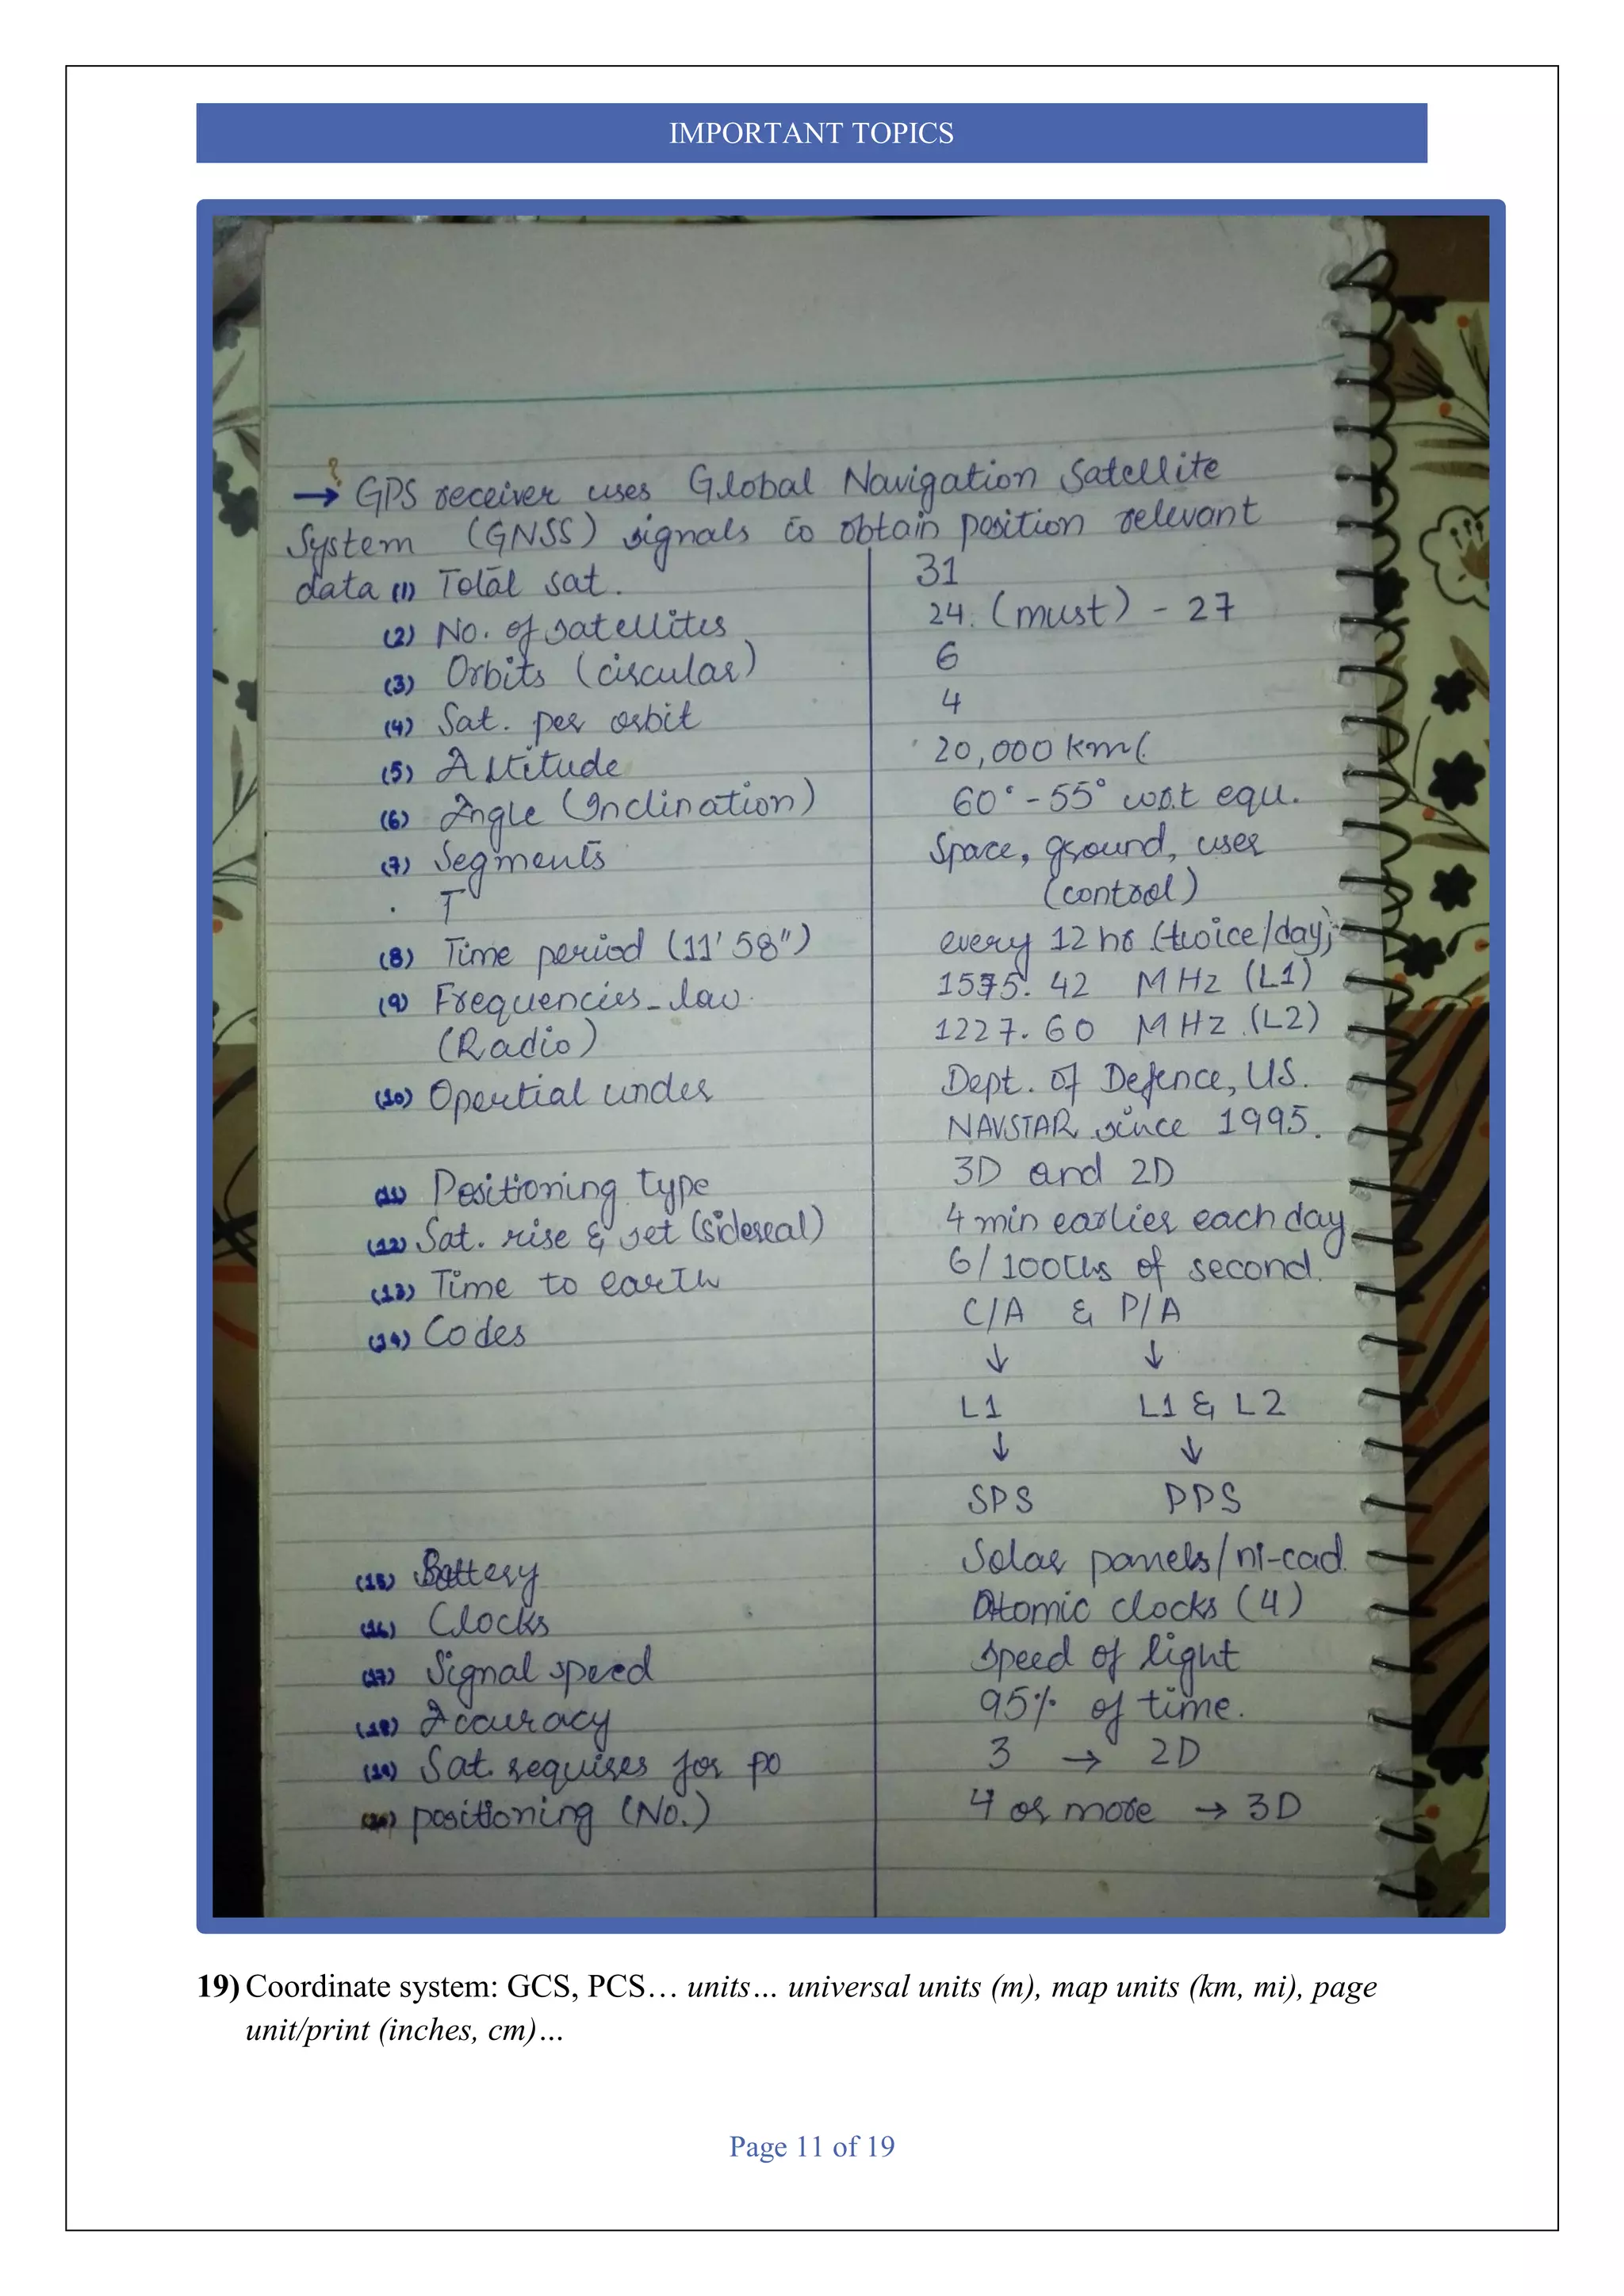 IMPORTANT TOPICS
→ GPS receiver uses Global Navigation Satellite
System (GNSS) signals to obtain position relevant
data (1) Total sat. 31
(2) No. of satellites 24. (must) - 27
(3) Orbits (circular) 6
(4) Sat. per orbit 4
(5) Altitude 20,000 km(.
(6) Angle (Inclination) 60° - 55° w.r.t equ.
(7) Segments Space, ground, user
. T (control)
(8) Time period (11' 58") every 12 hr (twice/day)
(9) Frequencies - low 1575.42 MHz (L1)
(Radio) 1227.60 MHz (L2)
(10) Opertial under Dept. of Defence, US.
NAVSTAR since 1995.
(11) Positioning type 3D and 2D
(12) Sat. rise & set (sidereal) 4 min earlier each day
(13) Time to earth 6/100ths of second.
(14) Codes C/A & P/A
↓ ↓
L1 L1 & L2
↓ ↓
SPS PPS
(15) Battery Solar panels/ni-cad.
(16) Clocks Atomic clocks (4)
(17) Signal speed speed of light
(18) Accuracy 95% of time.
(19) Sat. requires for po 3 → 2D
positioning (No.) 4 or more → 3D
19) Coordinate system: GCS, PCS… units… universal units (m), map units (km, mi), page
unit/print (inches, cm)…
Page 11 of 19